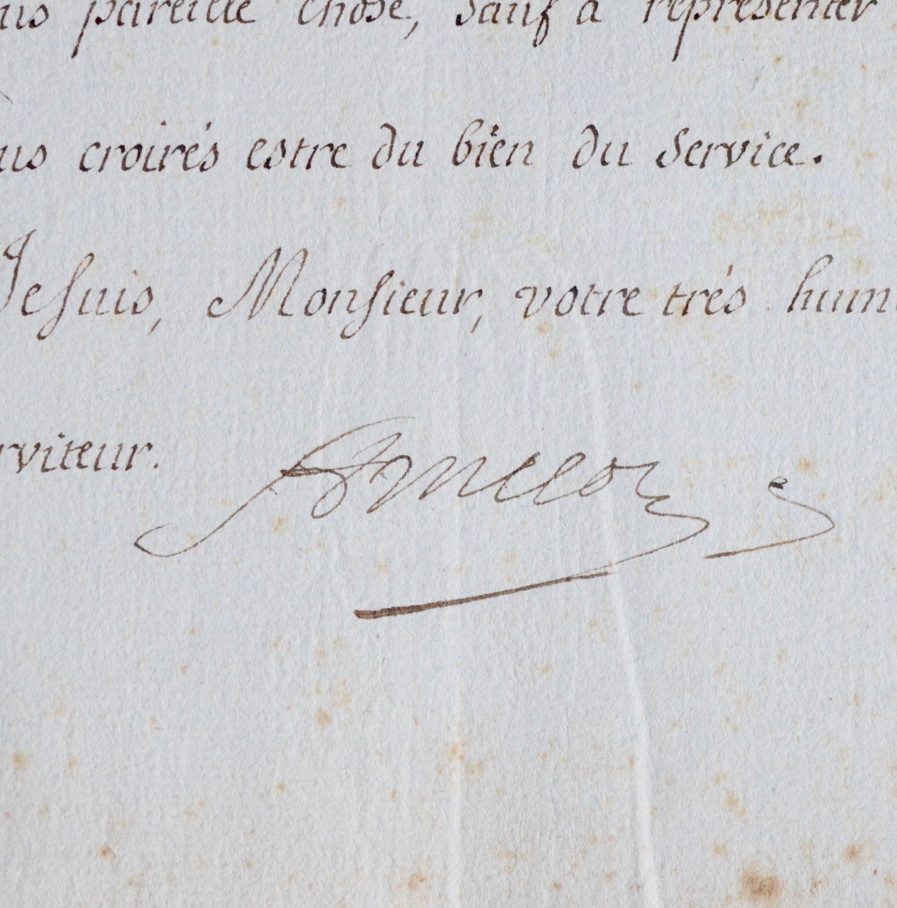 us pareille chose, sauf à représenter
us croirés estre du bien du Service.
Je suis, Monsieur, votre trés hum
rviteur.